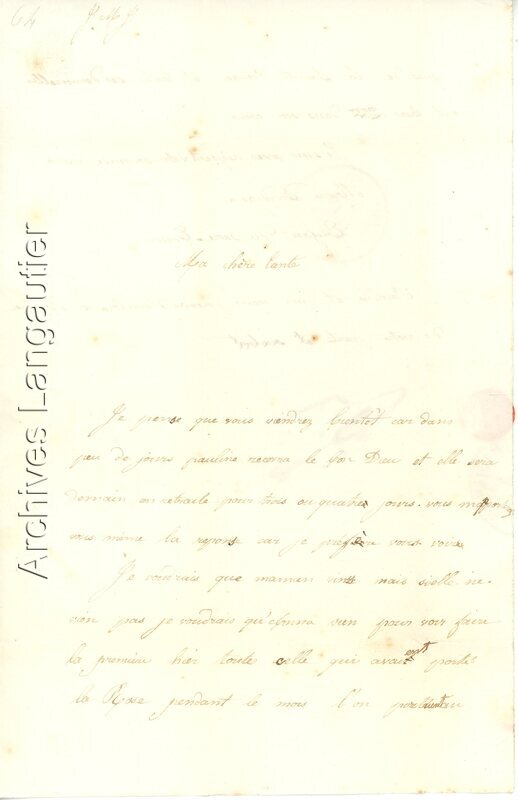 64
J. M. J.
Ma chère tante
Je pense que vous viendrez bientot car dans
peu de jours pauline recevra le bon Dieu et elle sera
demain en retraite pour trois ou quatre jours. vous
vous même la repons car je préfère vous voire
Je voudrais que maman vint mais si elle ne
vien pas je voudrais qu'Anna vien pour voir faire
la premiere hier toute celle qui avaient porté
la Rose pendant le mois l'on au
Archives Langautier